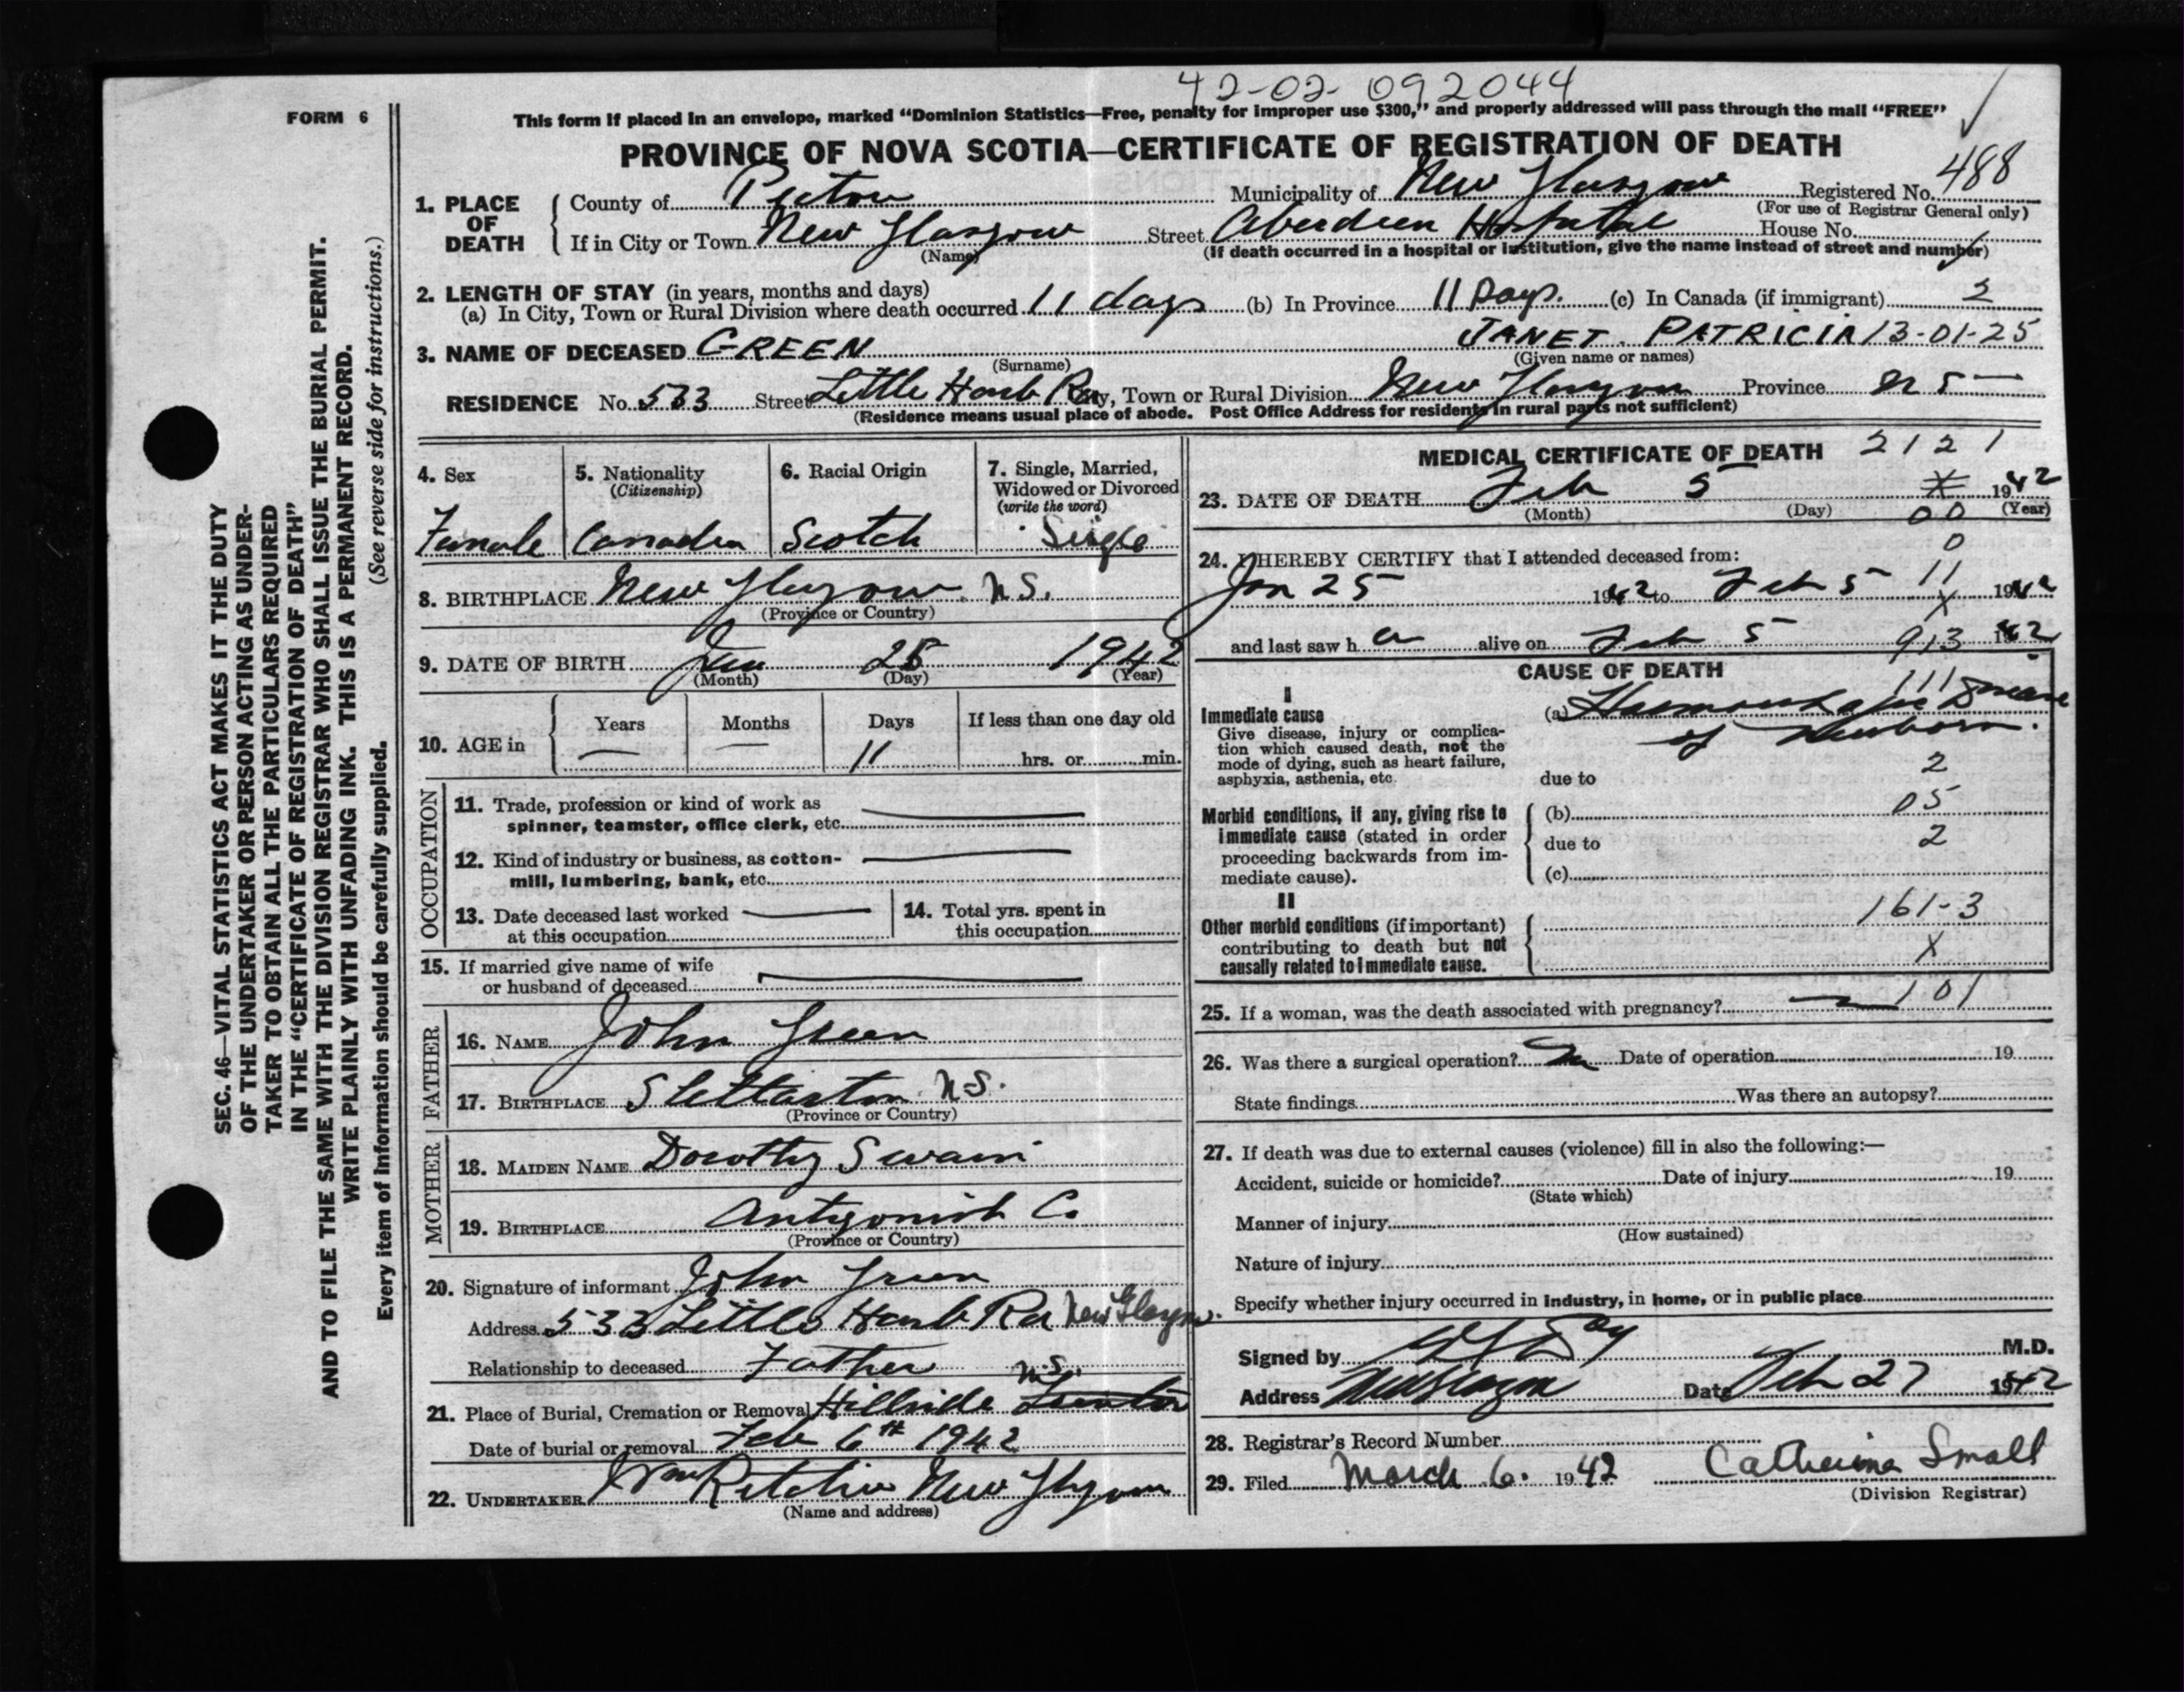 42-02-092044
FORM 6
This form if placed in an envelope, marked “Dominion Statistics—Free, penalty for improper use $300,” and properly addressed will pass through the mail “FREE”
PROVINCE OF NOVA SCOTIA—CERTIFICATE OF REGISTRATION OF DEATH
488
1. PLACE OF DEATH
County of Pictou Municipality of New Glasgow Registered No.
(For use of Registrar General only)
If in City or Town New Glasgow Street Aberdeen Hospital House No.
(Name) (If death occurred in a hospital or institution, give the name instead of street and number)
2. LENGTH OF STAY (in years, months and days)
(a) In City, Town or Rural Division where death occurred 11 days (b) In Province 11 Days. (c) In Canada (if immigrant) 2
3. NAME OF DECEASED GREEN JANET PATRICIA 13-01-25
(Surname) (Given name or names)
RESIDENCE No. 533 Street Little Harb Rd City, Town or Rural Division New Glasgow Province N S
(Residence means usual place of abode. Post Office Address for residents in rural parts not sufficient)
4. Sex
Female
5. Nationality
(Citizenship)
Canadian
6. Racial Origin
Scotch
7. Single, Married,
Widowed or Divorced
(write the word)
Single
8. BIRTHPLACE New Glasgow N.S.
(Province or Country)
9. DATE OF BIRTH Jan 25 1942
(Month) (Day) (Year)
10. AGE in
Years Months Days If less than one day old
— — 11 hrs. or min.
OCCUPATION
11. Trade, profession or kind of work as
spinner, teamster, office clerk, etc.
12. Kind of industry or business, as cotton-
mill, lumbering, bank, etc.
13. Date deceased last worked
at this occupation
14. Total yrs. spent in
this occupation
15. If married give name of wife
or husband of deceased
FATHER
16. NAME John Green
17. BIRTHPLACE Stellarton N.S.
(Province or Country)
MOTHER
18. MAIDEN NAME Dorothy Swain
19. BIRTHPLACE Antigonish C.
(Province or Country)
20. Signature of informant John Green
Address 533 Little Harb Rd New Glasgow.
Relationship to deceased Father N.S.
21. Place of Burial, Cremation or Removal Hillside Trenton
Date of burial or removal Feb 6th 1942
22. UNDERTAKER Ritchie New Glasgow
(Name and address)
MEDICAL CERTIFICATE OF DEATH 2121
23. DATE OF DEATH Feb 5 X 1942
(Month) (Day) (Year)
00
0
24. I HEREBY CERTIFY that I attended deceased from:
11
Jan 25 1942 to Feb 5 1942
X
and last saw h er alive on Feb 5 1942
913
CAUSE OF DEATH
111
I
Immediate cause
Give disease, injury or complica-
tion which caused death, not the
mode of dying, such as heart failure,
asphyxia, asthenia, etc.
(a) Haemorrhagic Disease
of Newborn.
2
due to
Morbid conditions, if any, giving rise to
immediate cause (stated in order
proceeding backwards from im-
mediate cause).
(b) 05
due to 2
(c)
II
Other morbid conditions (if important)
contributing to death but not
causally related to immediate cause.
161-3
X
25. If a woman, was the death associated with pregnancy? 101
26. Was there a surgical operation? Date of operation 19
State findings Was there an autopsy?
27. If death was due to external causes (violence) fill in also the following:—
Accident, suicide or homicide? Date of injury 19
(State which)
Manner of injury
(How sustained)
Nature of injury
Specify whether injury occurred in industry, in home, or in public place
Signed by M.D.
Address New Glasgow Date Feb 27 1942
28. Registrar's Record Number
29. Filed March 6. 1942 Catherine Small
(Division Registrar)
SEC. 46—VITAL STATISTICS ACT MAKES IT THE DUTY
OF THE UNDERTAKER OR PERSON ACTING AS UNDER-
TAKER TO OBTAIN ALL THE PARTICULARS REQUIRED
IN THE “CERTIFICATE OF REGISTRATION OF DEATH”
AND TO FILE THE SAME WITH THE DIVISION REGISTRAR WHO SHALL ISSUE THE BURIAL PERMIT.
WRITE PLAINLY WITH UNFADING INK. THIS IS A PERMANENT RECORD.
Every item of information should be carefully supplied. (See reverse side for instructions.)